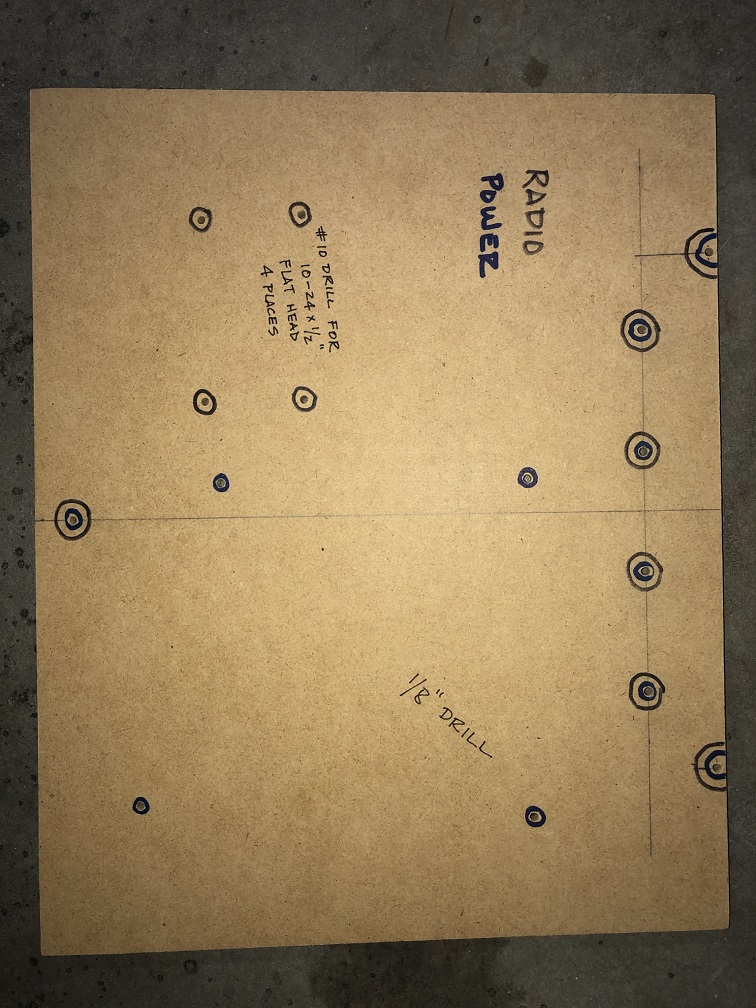 RADIO
POWER
#10 DRILL FOR
10-24 x 1/2"
FLAT HEAD
4 PLACES
1/8" DRILL